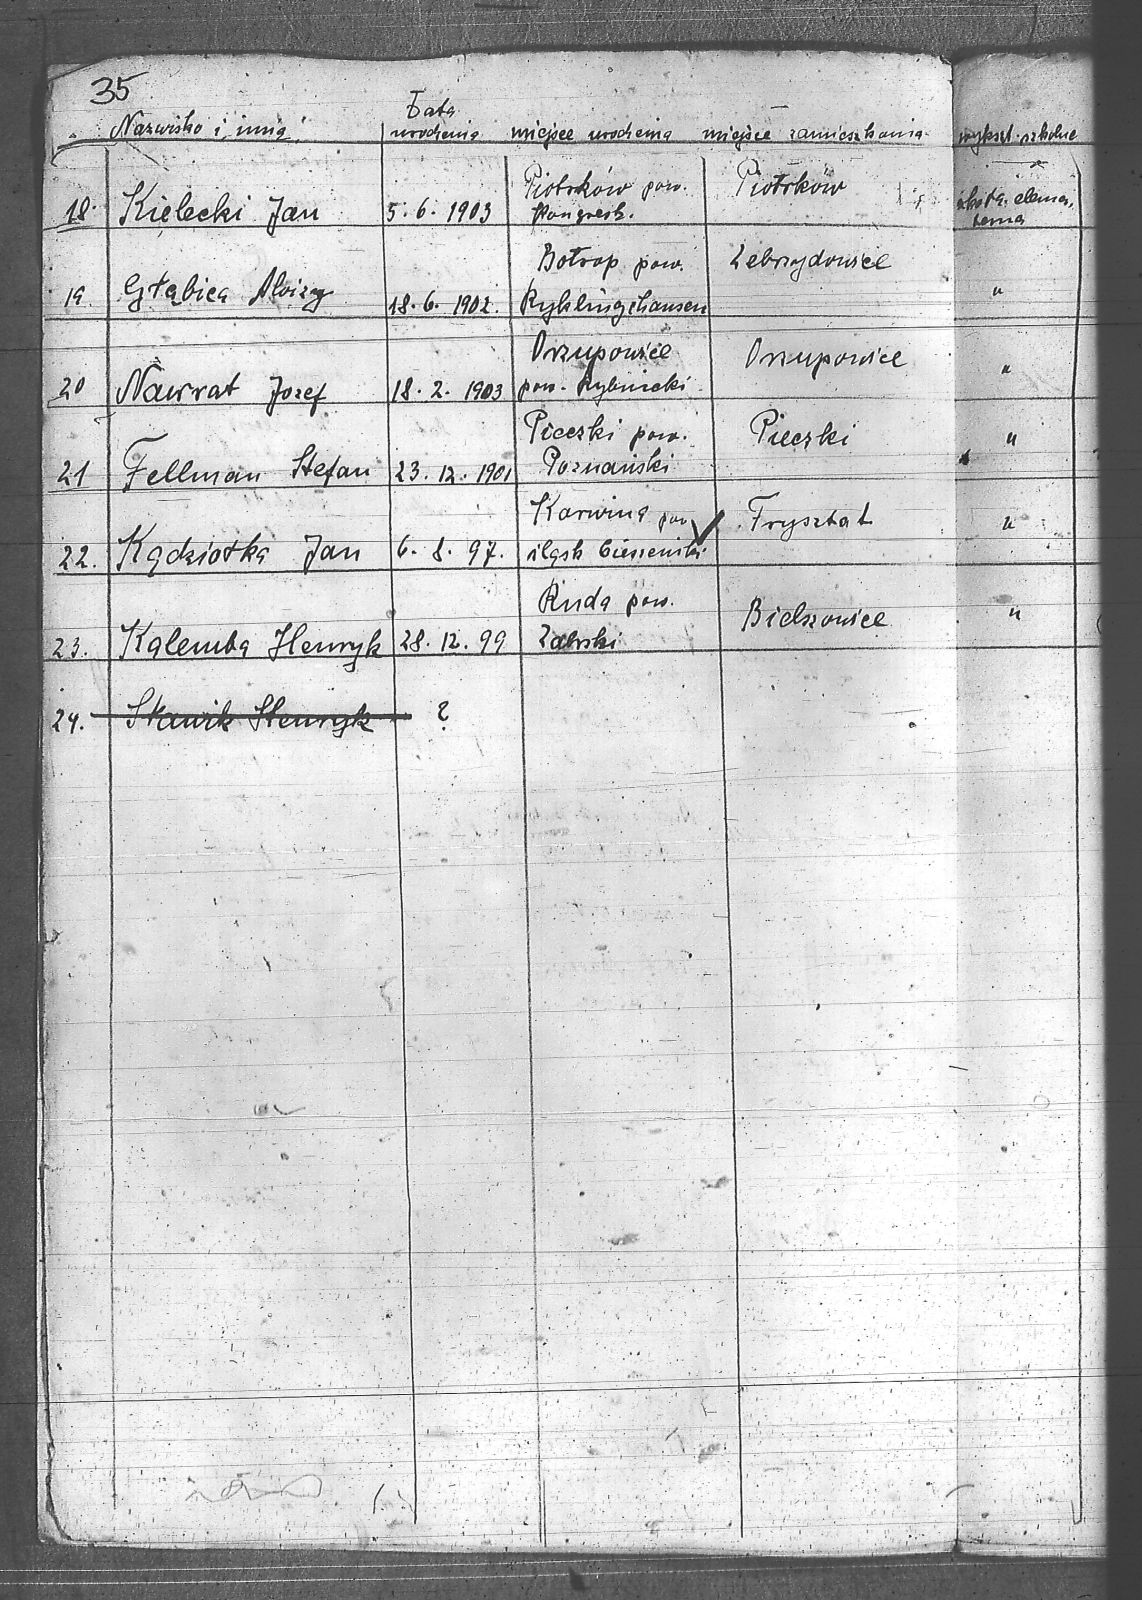 35
Nazwisko i imię
Data urodzenia
miejsce urodzenia
miejsce zamieszkania
wykszt. szkolne
18. Kielecki Jan 5.6.1903 Piotrków pow. Kongresk. Piotrków szkoła elemen.
19. Głąbica Aloizy 18.6.1902. Botrop pow. Ryklingshausen Zebrzydowice "
20 Nawrat Jozef 18.2.1903 Orzupowice pow. Rybnicki Orzupowice "
21 Fellman Stefan 23.12.1901 Pieczki pow. Poznański Pieczki "
22. Kądziołka Jan 6.8.97. Karwina pow. śląsk Cieszeński Frysztat "
23. Kalemba Henryk 28.12.99 Ruda pow. Zabrski Bielszowice "
24. Skawik Henryk ?